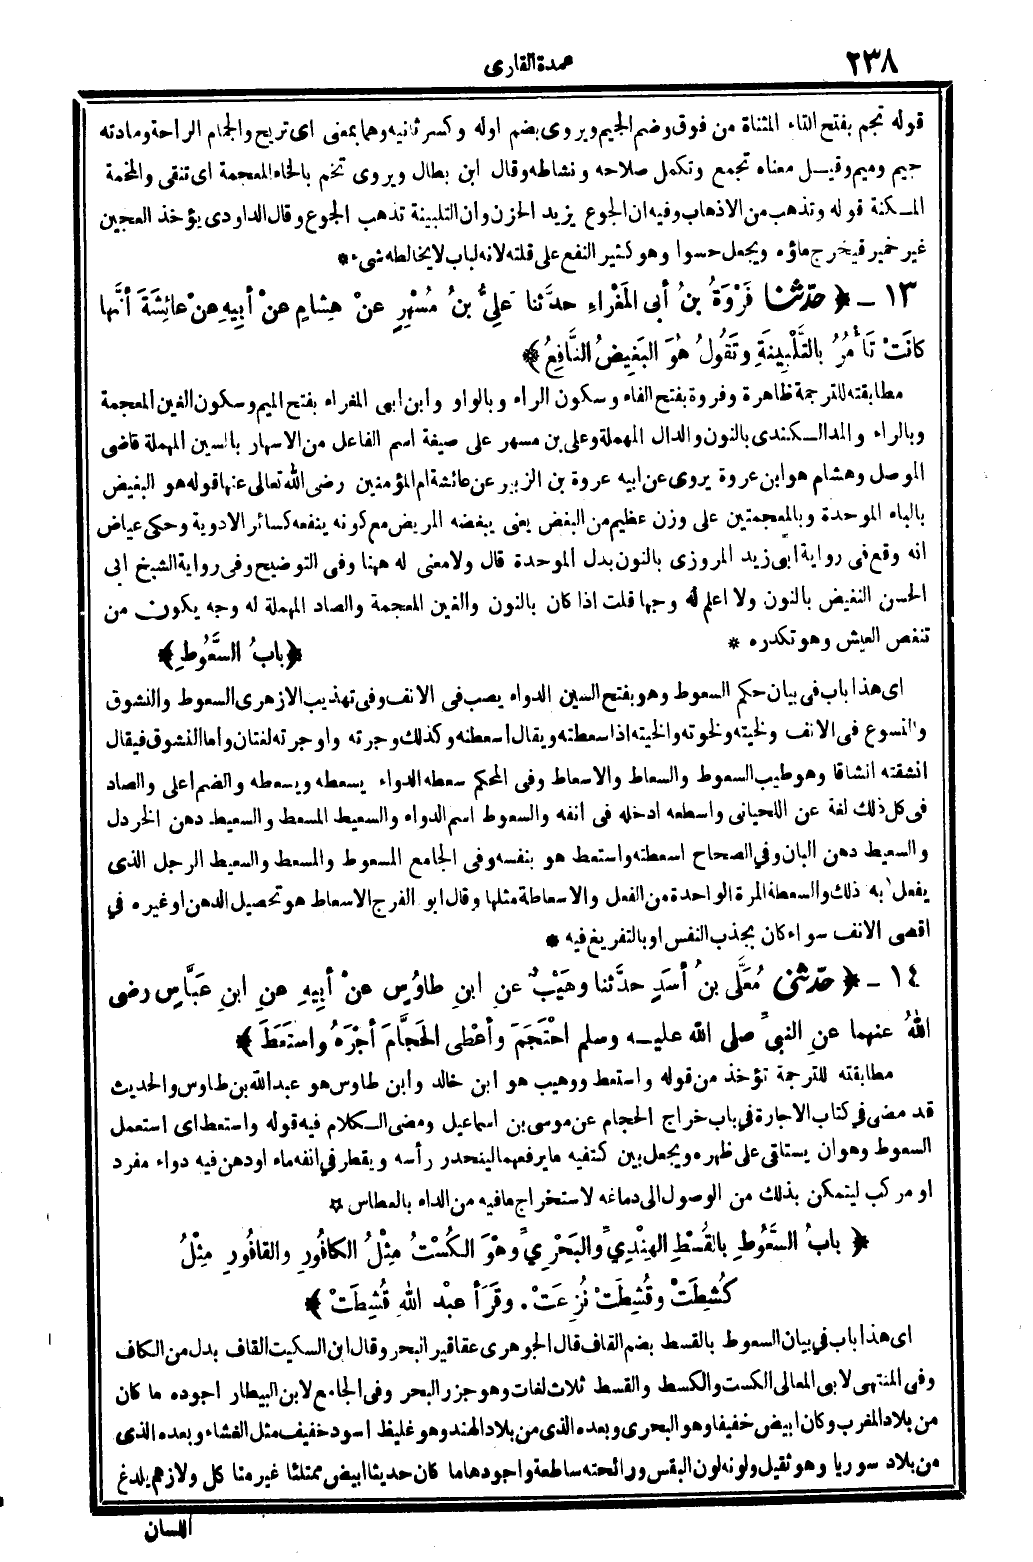 ٢٣٨
عمدة القارى
قوله تجم بفتح التاء المثناة من فوق وضم الجيم ويروى بضم اوله وكسر ثانيه وهما بمعنى اى تريح والجمام الراحة ومادته
جيم وميم وقيل معناه تجمع وتكمل صلاحه ونشاطه وقال ابن بطال ويروى تخم بالخاء المعجمة اى تنقى والمخمة
المكنة قوله وتذهب من الاذهاب وفيه ان الجوع يزيد الحزن وان التلبينة تذهب الجوع وقال الداودى يؤخذ العجين
غير خمير فيخرج ماؤه ويجعل حسوا وهو كثير النفع على قلته لانه لباب لا يخالطه شىء *
١٣ - ﴿ حدّثنا فَرْوَةُ بنُ أبى المَغْراءِ حدَّثنا عَلِيُّ بنُ مُسْهِرٍ عنْ هِشامٍ عنْ أبِيهِ عنْ عائِشَةَ أنَّها
كانَتْ تَأْمُرُ بالتَّلْبِينَةِ وتَقُولُ هُوَ البَغِيضُ النَّافِعُ ﴾
مطابقته للترجمة ظاهرة وفروة بفتح الفاء وسكون الراء وبالواو وابن ابى المغراء بفتح الميم وسكون الغين المعجمة
وبالراء والمد الكندى بالنون والدال المهملة وعلى بن مسهر على صيغة اسم الفاعل من الاسهار بالسين المهملة قاضى
الموصل وهشام هو ابن عروة يروى عن ابيه عروة بن الزبير عن عائشة ام المؤمنين رضى الله تعالى عنها قوله هو البغيض
بالباء الموحدة وبالمعجمتين على وزن عظيم من البغض يعنى يبغضه المريض مع كونه ينفعه كسائر الادوية وحكى عياض
انه وقع فى رواية ابى زيد المروزى بالنون بدل الموحدة قال ولا معنى له ههنا وفى التوضيح وفى رواية الشيخ ابى
الحسن النغيض بالنون ولا اعلم له وجها قلت اذا كان بالنون والغين المعجمة والصاد المهملة له وجه يكون من
تنغص العيش وهو تكدره *
﴿ بابُ السَّعُوطِ ﴾
اى هذا باب فى بيان حكم السعوط وهو بفتح السين الدواء يصب فى الانف وفى تهذيب الازهرى السعوط والنشوق
والنسوع فى الانف ولخيته ولخوته والخيته اذا سعطته ويقال اسعطته وكذلك وجرته واوجرته لغتان واما النشوق فيقال
انشقته انشاقا وهو طيب السعوط والسعاط والاسعاط وفى المحكم سعطه الدواء يسعطه ويسعطه والضم اعلى والصاد
فى كل ذلك لغة عن اللحيانى واسطعه ادخله فى انفه والسعوط اسم الدواء والسعيط المسعط والسعيط دهن الخردل
والسعيط دهن البان وفي الصحاح اسعطته واستعط هو بنفسه وفى الجامع المسعوط والمسعط والسعيط الرجل الذى
يفعل به ذلك والسعطة المرة الواحدة من الفعل والاسعاطة مثلها وقال ابو الفرج الاسعاط هو تحصيل الدهن او غيره في
اقصى الانف سواء كان بجذب النفس او بالتفريغ فيه *
١٤ - ﴿ حدّثنى مُعَلَّى بنُ أسَدٍ حدَّثنا وهَيْبٌ عنِ ابنِ طاوُسٍ عنْ أبِيهِ عنِ ابنِ عَبَّاسٍ رضى
اللهُ عنهما عنِ النبىِّ صلى الله عليه وسلم احْتَجَمَ وأعْطى الحَجَّامَ أجْرَهُ واستَعَطَ ﴾
مطابقته للترجمة تؤخذ من قوله واستعط ووهيب هو ابن خالد وابن طاوس هو عبدالله بن طاوس والحديث
قد مضى فى كتاب الاجارة في باب خراج الحجام عن موسى بن اسماعيل ومضى الكلام فيه قوله واستعط اى استعمل
السعوط وهو ان يستلقى على ظهره ويجعل بين كتفيه ما يرفعهما لينحدر رأسه ويقطر في انفه ماء او دهن فيه دواء مفرد
او مركب ليتمكن بذلك من الوصول الى دماغه لاستخراج ما فيه من الداء بالعطاس *
﴿ بابُ السَّعُوطِ بالقُسْطِ الهِنْدِيِّ والبَحْرِيِّ وهْوَ الكُسْتُ مِثْلُ الكافُورِ والقافُورِ مِثْلُ
كُشِطَتْ وقُشِطَتْ نُزِعَتْ . وقَرَأ عبْد اللهِ قُشِطَتْ ﴾
اى هذا باب في بيان السعوط بالقسط بضم القاف قال الجوهرى عقاقير البحر وقال ابن السكيت القاف بدل من الكاف
وفى المنتهى لابى المعالى الكست والكسط والقسط ثلاث لغات وهو جزر البحر وفى الجامع لابن البيطار اجوده ما كان
من بلاد المغرب وكان ابيض خفيفا وهو البحرى وبعده الذى من بلاد الهند وهو غليظ اسود خفيف مثل القثاء وبعده الذى
من بلاد سوريا وهو ثقيل ولونه لون البقس ورائحته ساطعة واجودها ما كان حديثا ابيض ممتلئا غير متأكل ولا زهم يلدغ
اللسان